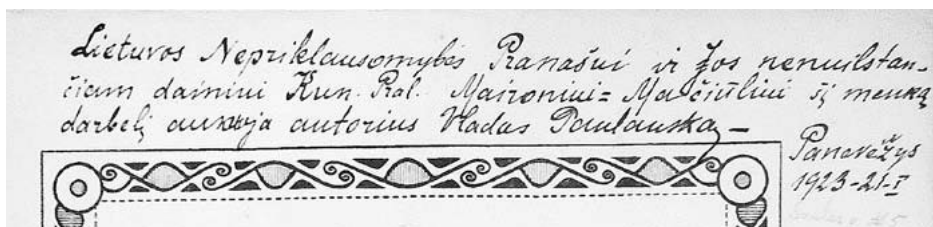 Lietuvos Nepriklausomybės Pranašui ir Jos nenuilstan-
čiam dainiui Kun. Pral. Maironiui = Mačiuliui šį menką
darbelį aukoja autorius Vladas Paulauskas –
Panevėžys
1923-21-I